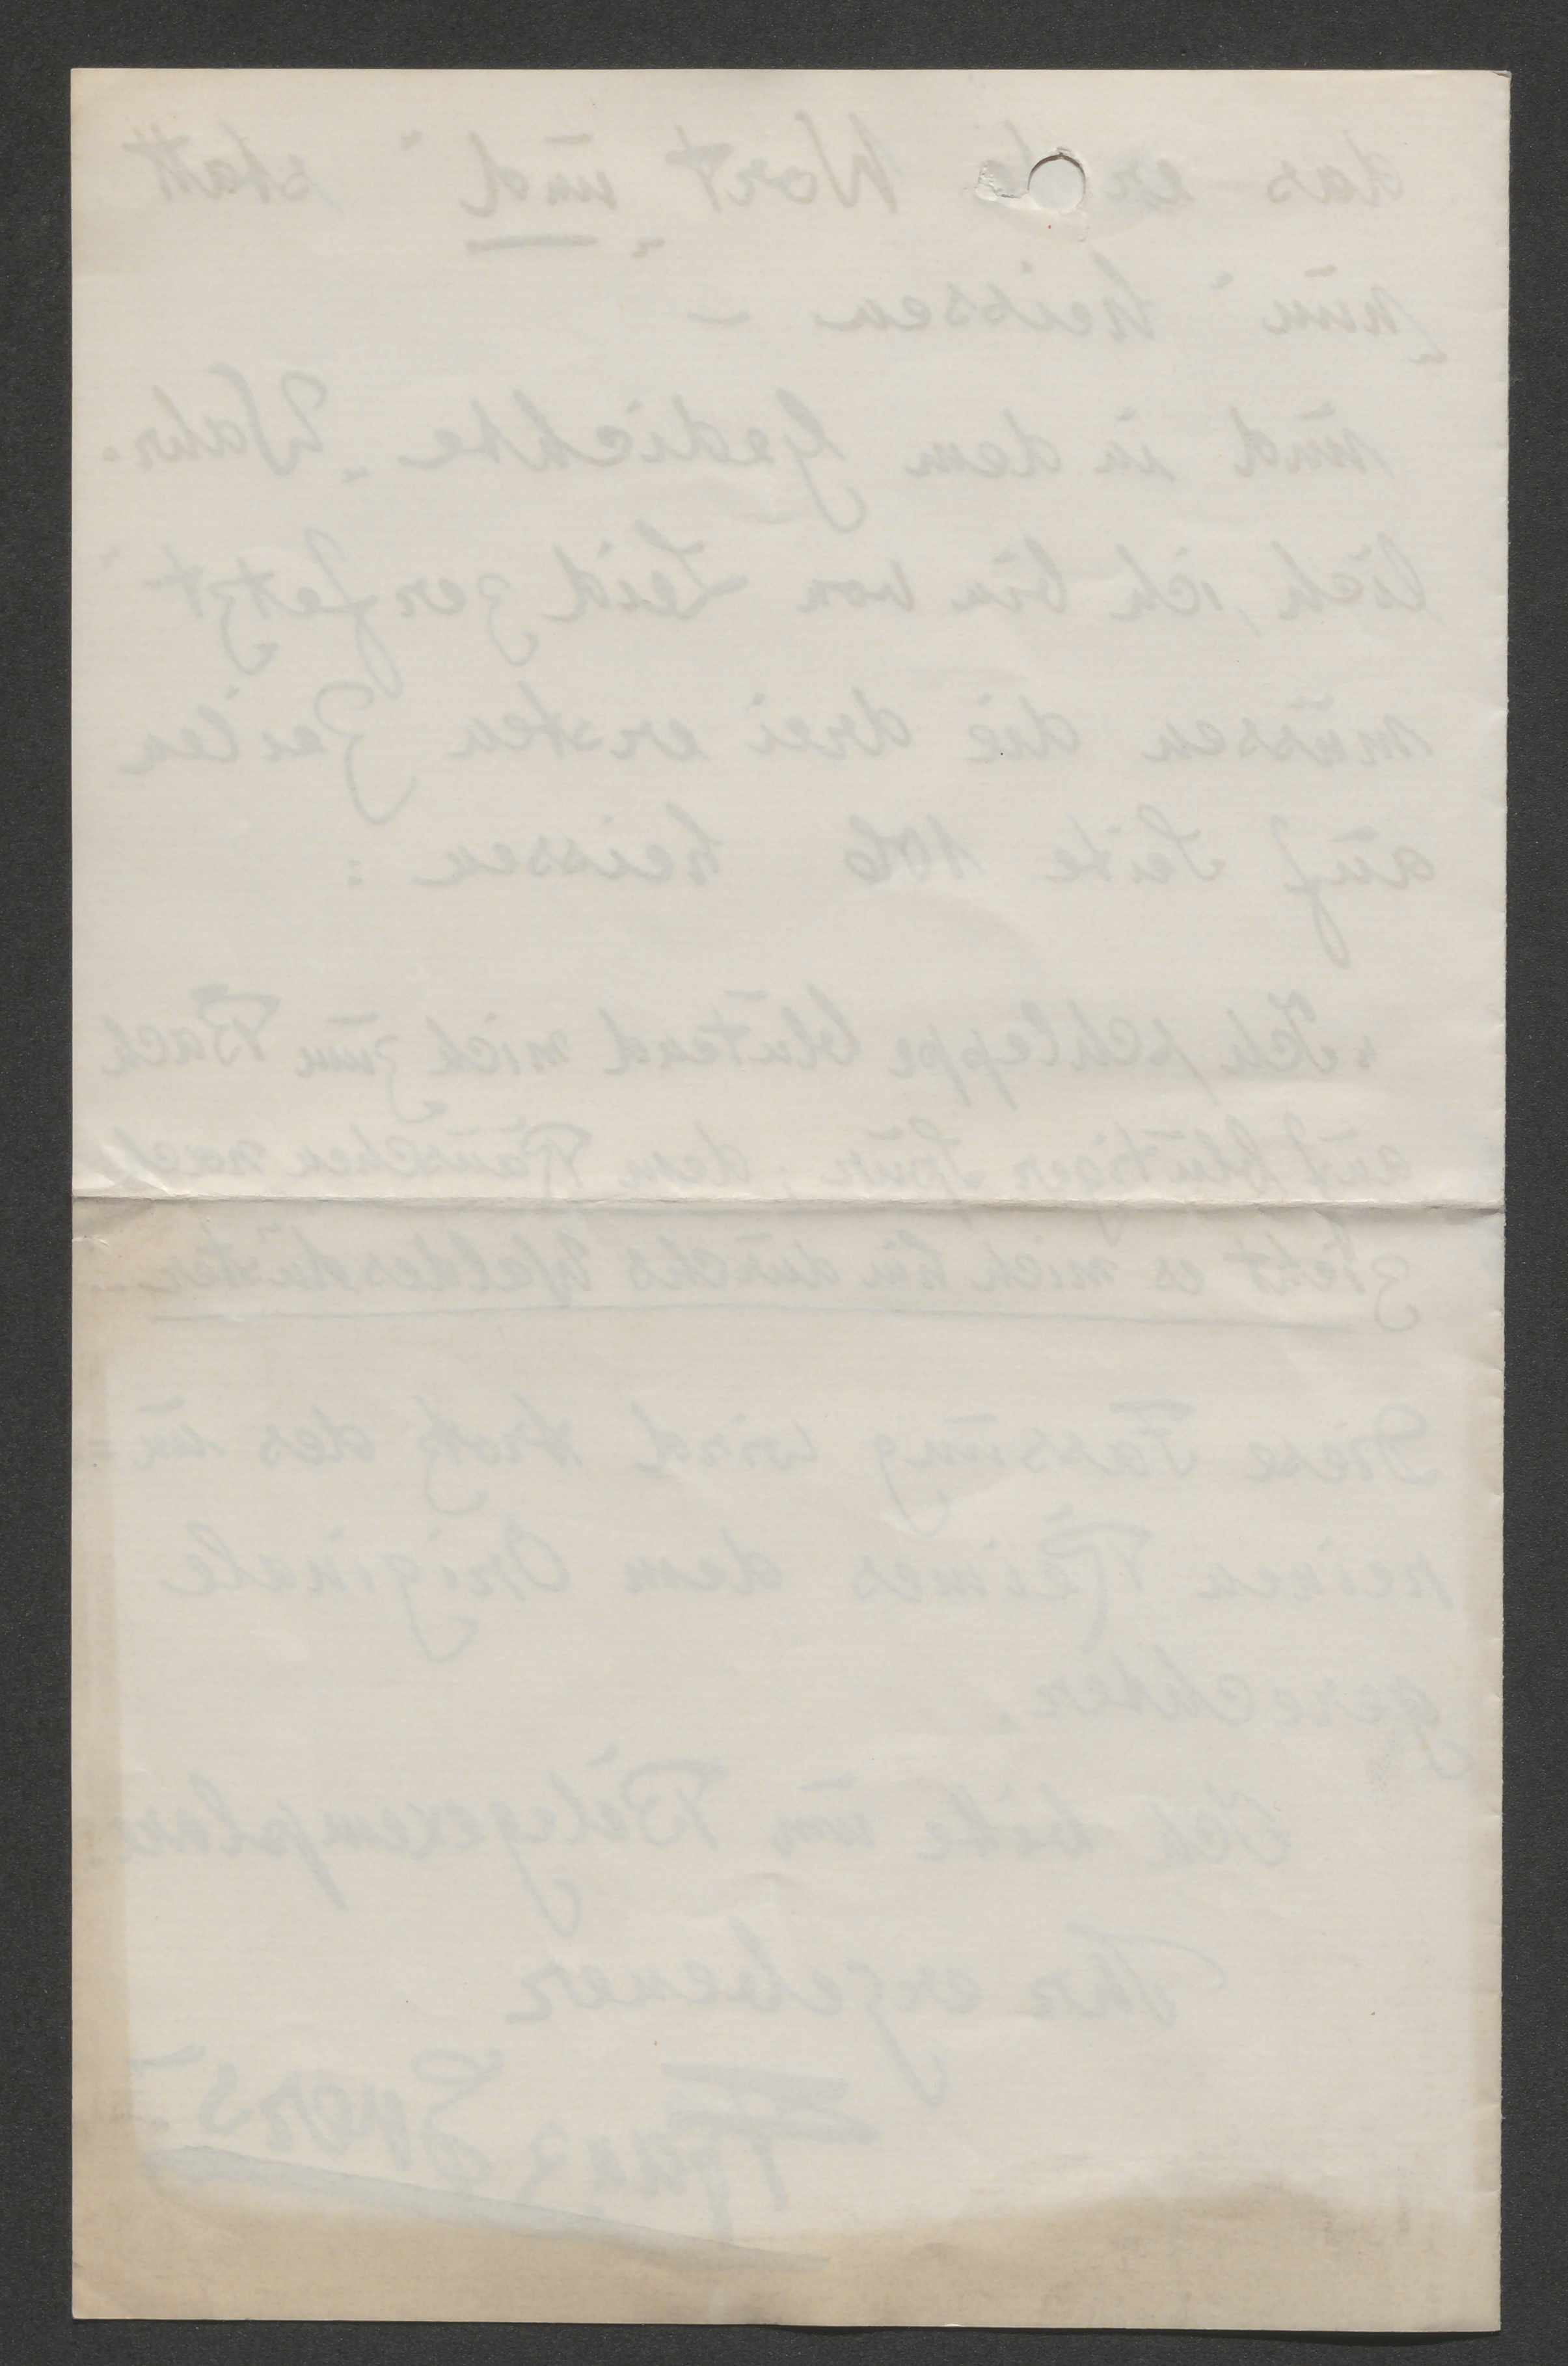 das erste Wort „und“ statt
„nun“ heissen –
und in dem Gedichte „Wahr-
lich, ich bin von Leid zerfetzt“
müssen die drei ersten Zeilen
auf Seite 106 heissen :
„Ich schleppe blutend mich zum Bach
auf blutiger Spur; dem Rauschen nach
zieht es mich hin durchs Waldesdüster...
Diese Fassung wird trotz des un=
reinen Reimes dem Originale
gerechter.
Ich bitte um Belegexemplare.
Ihr ergebener
Franz Evers.